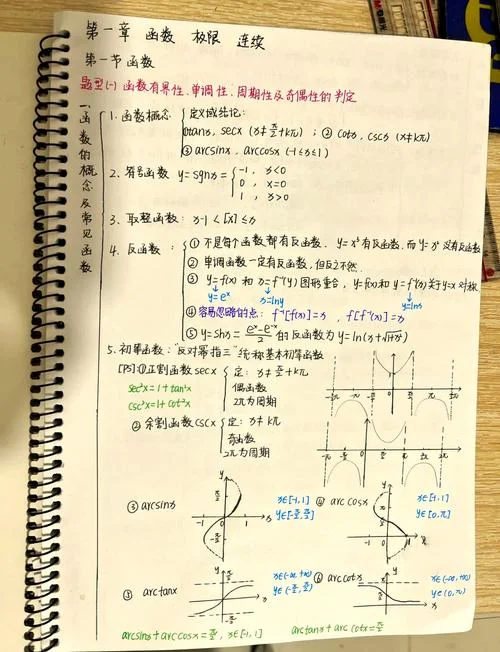 第一章 函数 极限 连续
第一节 函数
题型(一) 函数有界性、单调性、周期性及奇偶性的判定
一、函数的概念及常见函数
1. 函数概念 { 定义域结论:
①tanx, secx (x≠π/2+kπ) ; ② cotx, cscx (x≠kπ)
③ arcsinx, arccosx (-1≤x≤1)
2. 符号函数 y=sgnx= { -1, x<0
0, x=0
1, x>0
3. 取整函数: x-1<[x]≤x
4. 反函数: { ① 不是每个函数都有反函数. y=x³有反函数, 而y=x²没有反函数
② 单调函数一定有反函数, 但反之不然.
③ y=f(x) 和 x=f⁻¹(y) 图形重合, y=f(x) 和 y=f⁻¹(x) 关于y=x对称
y=eˣ x=lny y=lnx
④ 容易忽略的点: f⁻¹[f(x)]=x, f[f⁻¹(x)]=x
⑤ y=shx=(eˣ-e⁻ˣ)/2 的反函数为 y=ln(x+√(1+x²))
5. 初等函数: "反对幂指三" 统称基本初等函数
[PS] ①正割函数 secx { 定: x≠π/2+kπ
偶函数
2π为周期
sec²x=1+tan²x
csc²x=1+cot²x
② 余割函数 cscx { 定: x≠kπ
奇函数
2π为周期
③ arcsinx
x∈[-1,1]
y∈[-π/2,π/2]
④ arccosx
x∈[-1,1]
y∈[0,π]
⑤ arctanx
x∈(-∞,+∞)
y∈(-π/2,π/2)
⑥ arccotx
x∈(-∞,+∞)
y∈(0,π)
arcsinx+arccosx=π/2, x∈[-1,1]
arctanx+arccotx=π/2